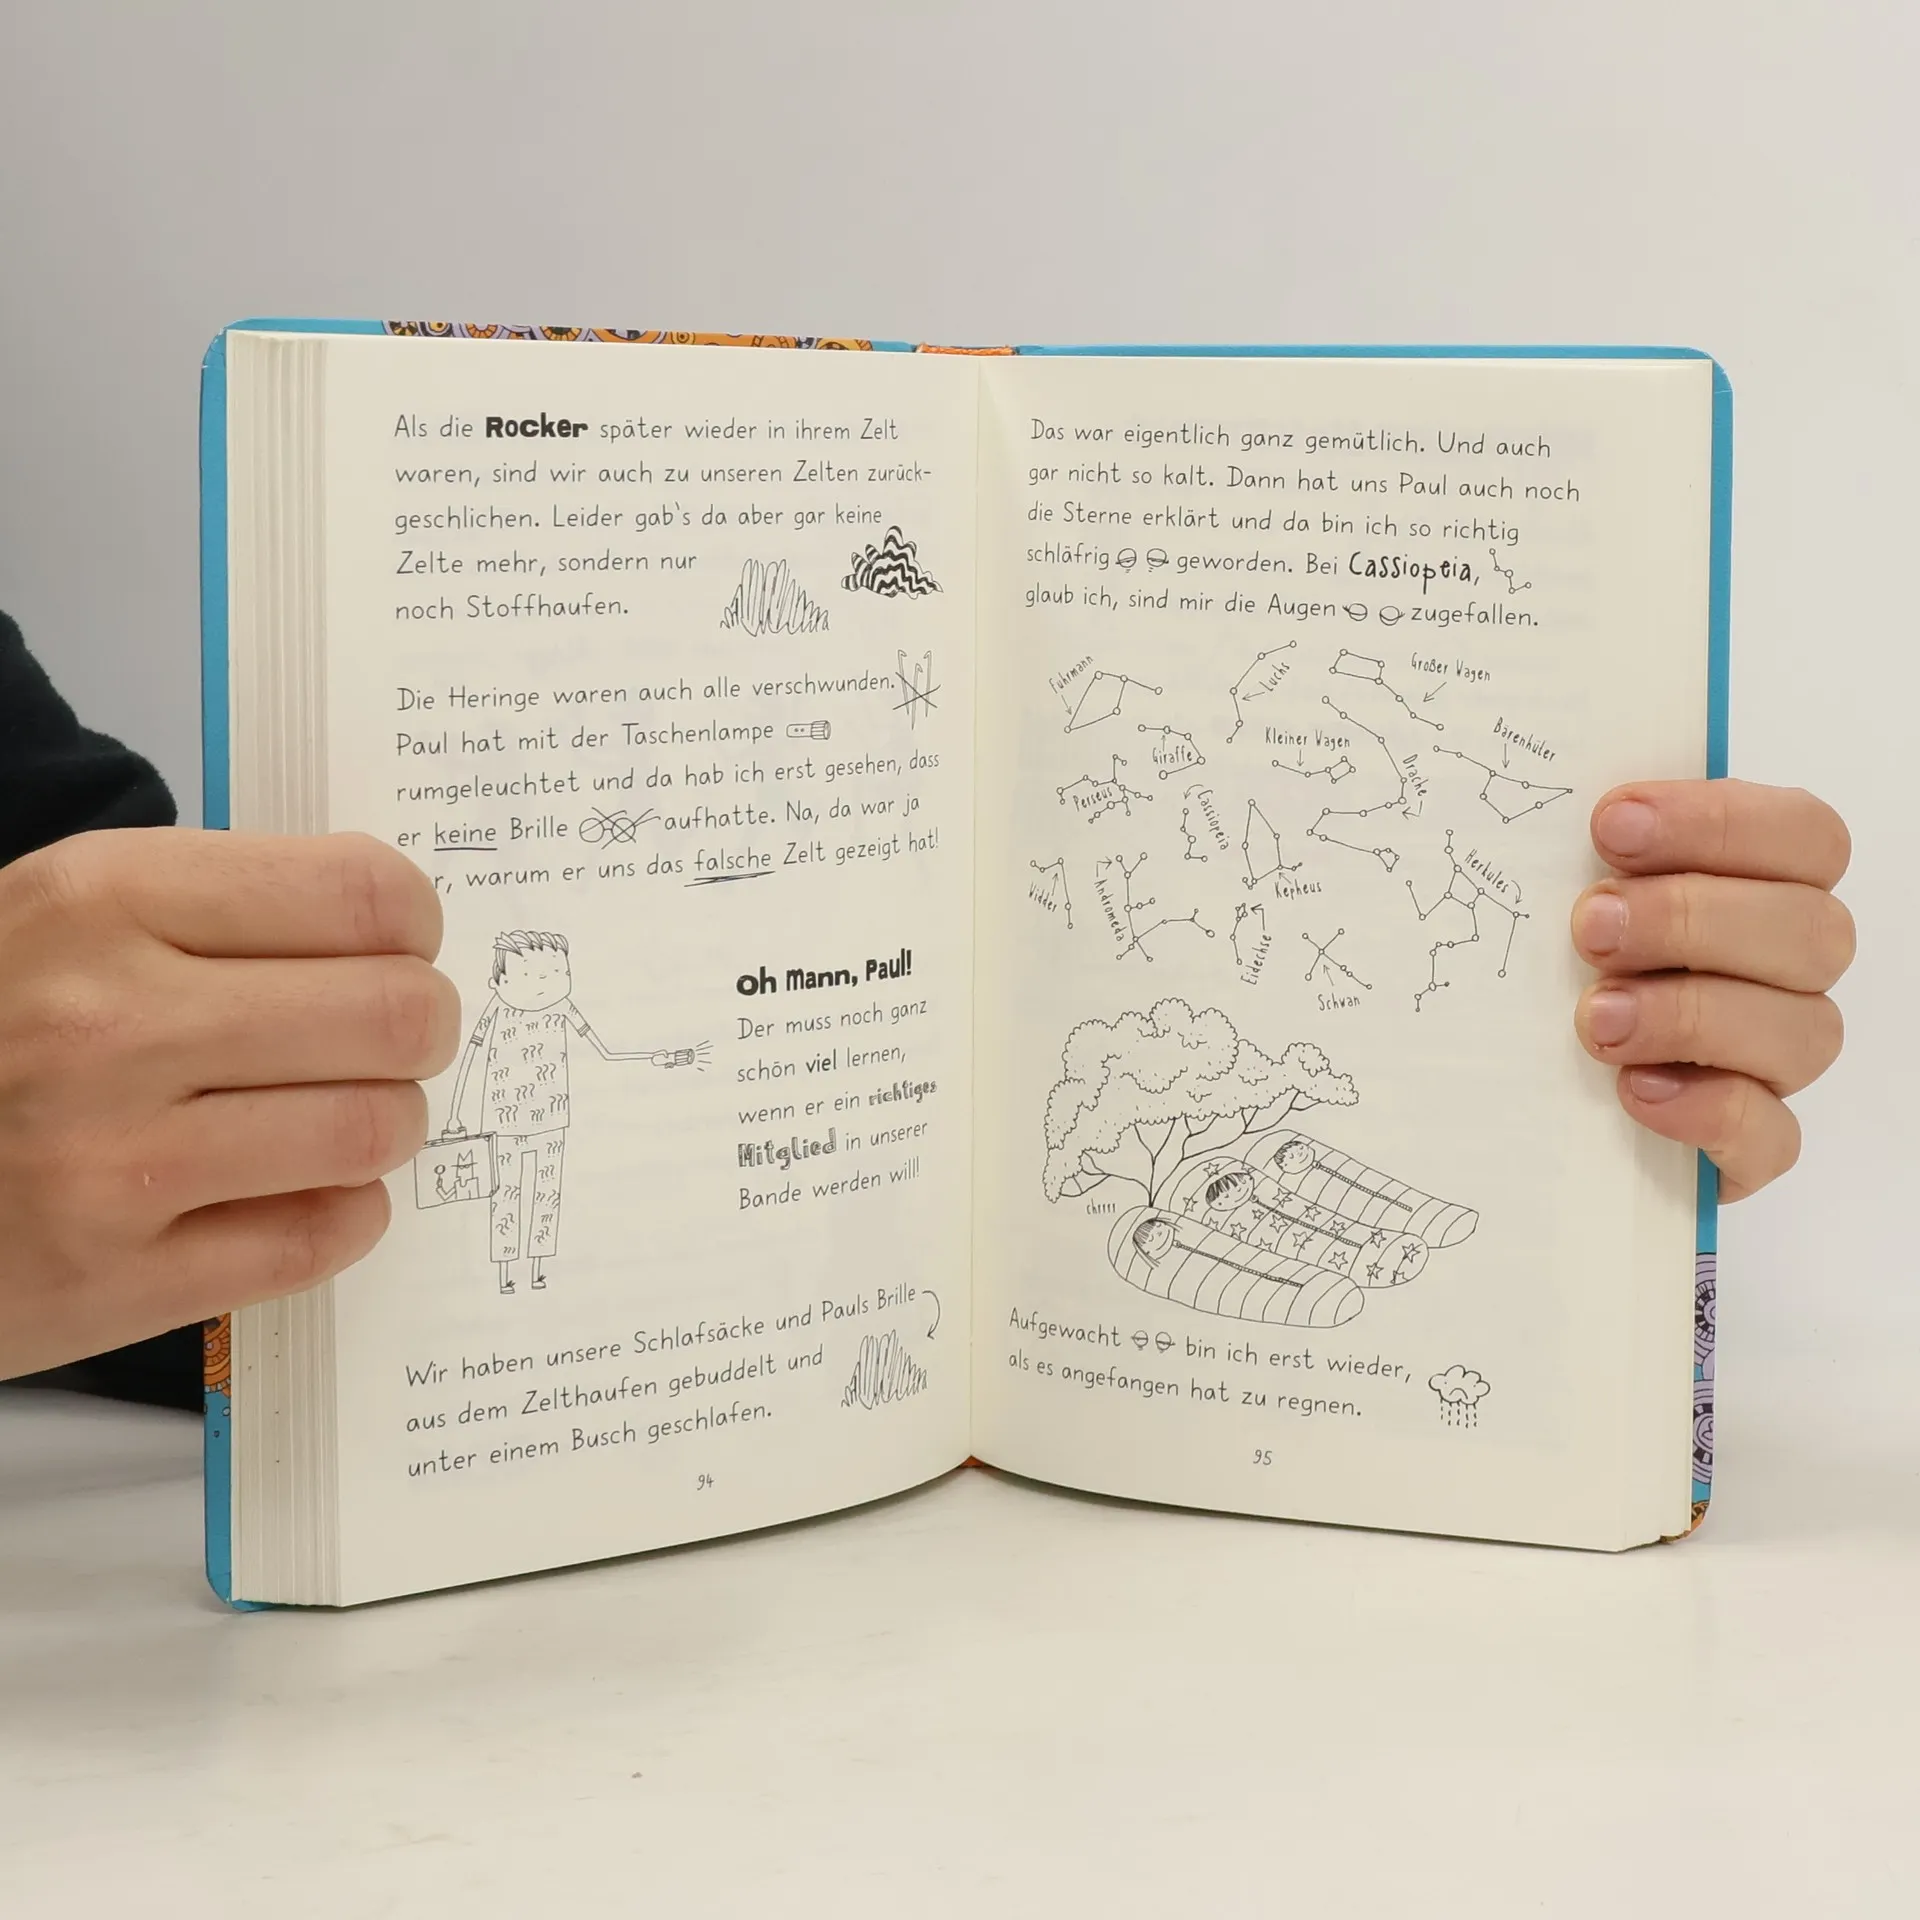 Als die Rocker später wieder in ihrem Zelt
waren, sind wir auch zu unseren Zelten zurück-
geschlichen. Leider gab's da aber gar keine
Zelte mehr, sondern nur
noch Stoffhaufen.
Die Heringe waren auch alle verschwunden.
Paul hat mit der Taschenlampe
rumgeleuchtet und da hab ich erst gesehen, dass
er keine Brille aufhatte. Na, da war ja
r, warum er uns das falsche Zelt gezeigt hat!
Oh Mann, Paul!
Der muss noch ganz
schön viel lernen,
wenn er ein richtiges
Mitglied in unserer
Bande werden will!
Wir haben unsere Schlafsäcke und Pauls Brille
aus dem Zelthaufen gebuddelt und
unter einem Busch geschlafen.
94
Das war eigentlich ganz gemütlich. Und auch
gar nicht so kalt. Dann hat uns Paul auch noch
die Sterne erklärt und da bin ich so richtig
schläfrig geworden. Bei Cassiopeia,
glaub ich, sind mir die Augen zugefallen.
Fuhrmann
Luchs
Großer Wagen
Giraffe
Kleiner Wagen
Bärenhüter
Drache
Perseus
Cassiopeia
Widder
Andromeda
Kepheus
Herkules
Eidechse
Schwan
chrrrr
Aufgewacht bin ich erst wieder,
als es angefangen hat zu regnen.
95